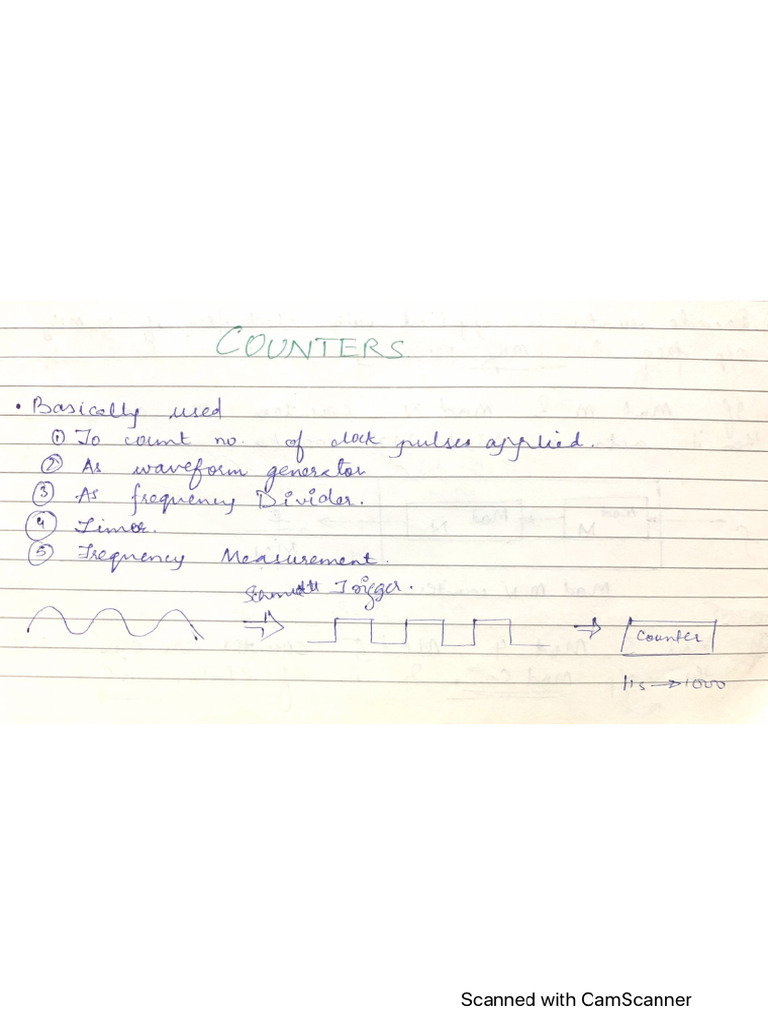 COUNTERS
• Basically used
① To count no. of clock pulses applied.
② As waveform generator
③ As frequency Divider.
④ Timer.
⑤ Frequency Measurement.
Schmitt Trigger.
⇒ → Counter
1s → 1000
Scanned with CamScanner